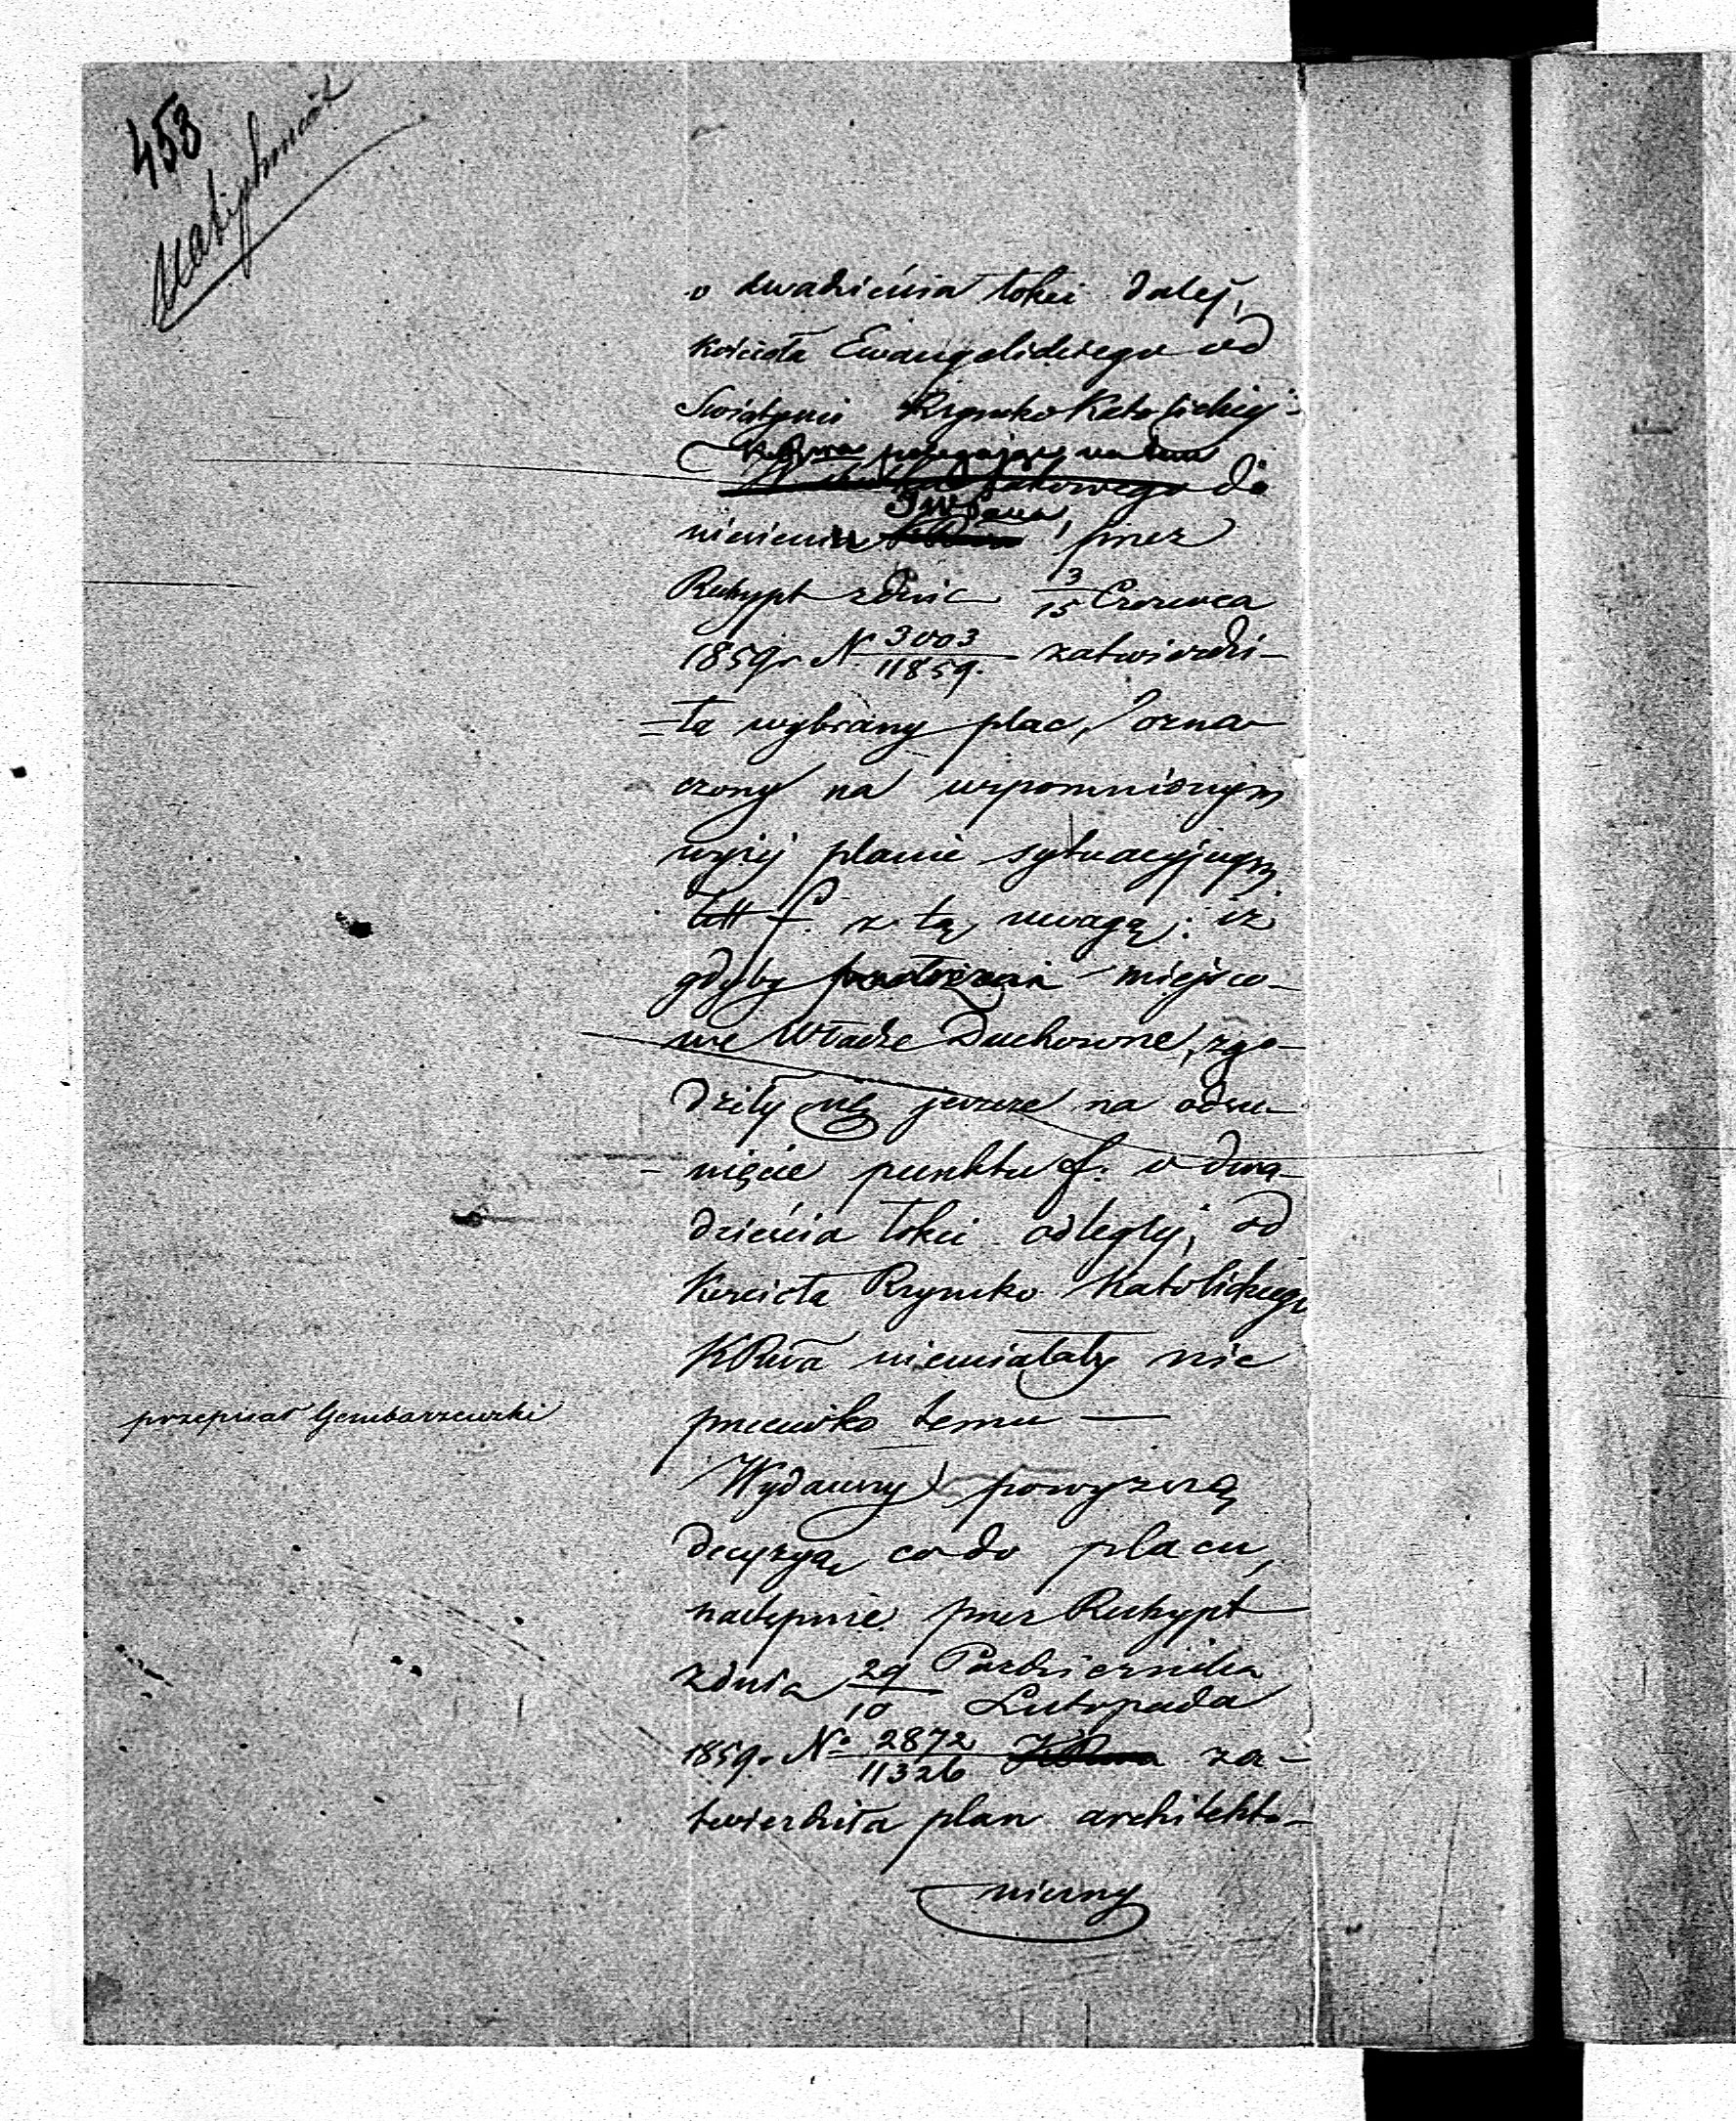 453
Natychmiast
o dwadzieścia łokci dalej,
Kościoła Ewangelickiego od
Swiątyni Rzymsko Katolickiej
polegając na tem
do
niesieniu przez
Reskrypt z dnia 3/15 Czerwca
1859 r. N. 3003/11859. zatwierdzi-
=ła wybrany plac, ozna
czony na wspomnionym
wyżej planie sytuacyjnym
litt f. z tą uwagą: iż
gdyby miejsco-
we Władze Duchowne, zgo-
dziły się jeszcze na odsu-
nięcie punktu f. o dwa-
dzieścia łokci odległej, od
Kościoła Rzymsko Katolickiego
KRwa niemiałaby nic
przeciwko temu —
przepisał Gembarzewski
Wydawszy powyższą
decyzyą co do placu,
następnie przez Reskrypt
z dnia 29 Października/10 Listopada
1859 r. No 2872/11326 za-
twierdziła plan architekto-
niczny